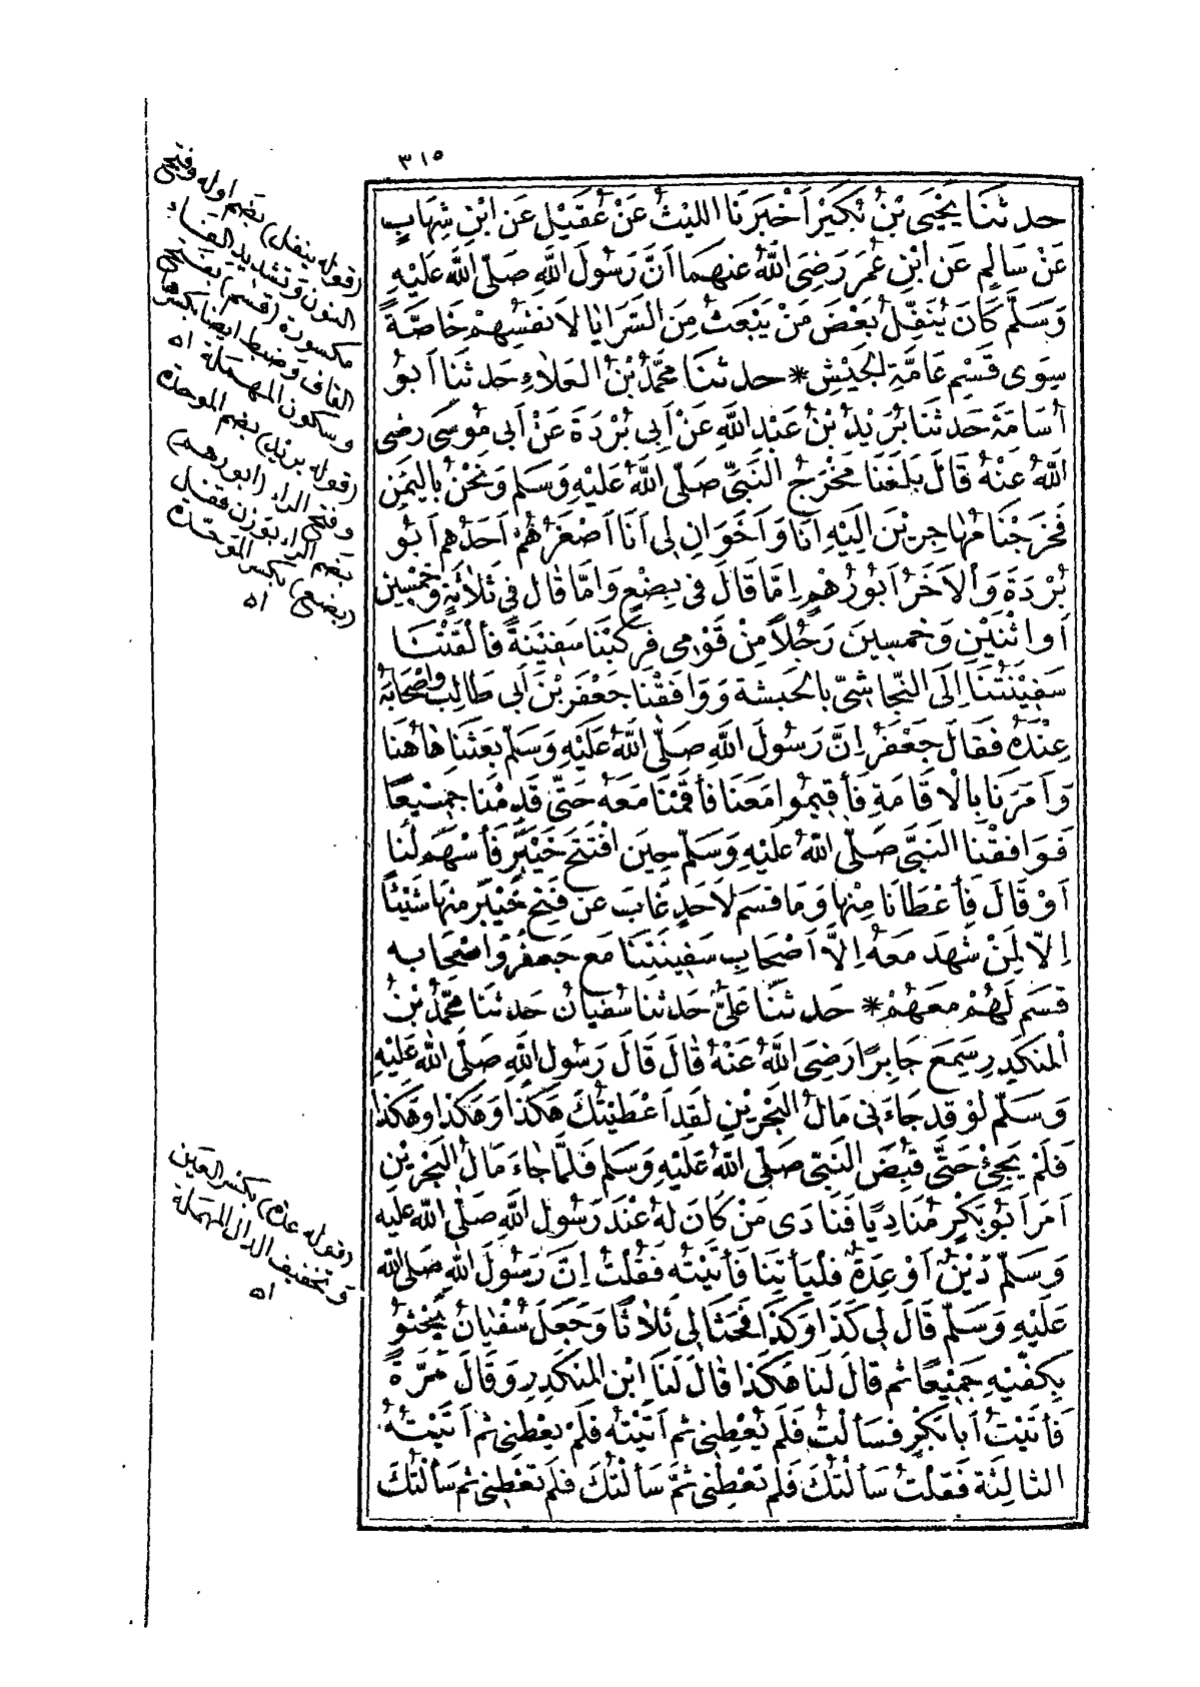 ٣١٥
حدثنا يَحْيَى بْنُ بُكَيْرٍ أَخْبَرَنَا اللَّيْثُ عَنْ عُقَيْلٍ عَنِ ابْنِ شِهَابٍ
عَنْ سَالِمٍ عَنِ ابْنِ عُمَرَ رَضِيَ اللَّهُ عَنْهُمَا أَنَّ رَسُولَ اللَّهِ صَلَّى اللَّهُ عَلَيْهِ
وَسَلَّمَ كَانَ يُنَفِّلُ بَعْضَ مَنْ يَبْعَثُ مِنَ السَّرَايَا لِأَنْفُسِهِمْ خَاصَّةً
سِوَى قَسْمِ عَامَّةِ الْجَيْشِ * حدثنا مُحَمَّدُ بْنُ الْعَلَاءِ حَدثنا أَبُو
أُسَامَةَ حَدثنا بُرَيْدُ بْنُ عَبْدِ اللَّهِ عَنْ أَبِي بُرْدَةَ عَنْ أَبِي مُوسَى رضى
اللَّهُ عَنْهُ قَالَ بَلَغَنَا مَخْرَجُ النَّبِيِّ صَلَّى اللَّهُ عَلَيْهِ وَسَلَّمَ وَنَحْنُ بِالْيَمَنِ
فَخَرَجْنَا مُهَاجِرِينَ إِلَيْهِ أَنَا وَأَخَوَانِ لِي أَنَا أَصْغَرُهُمْ أَحَدُهُمْ أَبُو
بُرْدَةَ وَالْآخَرُ أَبُو رُهْمٍ إِمَّا قَالَ فِي بِضْعٍ وَإِمَّا قَالَ فِي ثَلَاثَةٍ وَخَمْسِينَ
أَوِ اثْنَيْنِ وَخَمْسِينَ رَجُلًا مِنْ قَوْمِي فَرَكِبْنَا سَفِينَةً فَأَلْقَتْنَا
سَفِينَتُنَا إِلَى النَّجَاشِيِّ بِالْحَبَشَةِ وَوَافَقْنَا جَعْفَرَ بْنَ أَبِي طَالِبٍ وَأَصْحَابَهُ
عِنْدَهُ فَقَالَ جَعْفَرٌ إِنَّ رَسُولَ اللَّهِ صَلَّى اللَّهُ عَلَيْهِ وَسَلَّمَ بَعَثَنَا هَاهُنَا
وَأَمَرَنَا بِالْإِقَامَةِ فَأَقِيمُوا مَعَنَا فَأَقَمْنَا مَعَهُ حَتَّى قَدِمْنَا جَمِيعًا
فَوَافَقْنَا النَّبِيَّ صَلَّى اللَّهُ عَلَيْهِ وَسَلَّمَ حِينَ افْتَتَحَ خَيْبَرَ فَأَسْهَمَ لَنَا
أَوْ قَالَ فَأَعْطَانَا مِنْهَا وَمَا قَسَمَ لِأَحَدٍ غَابَ عَنْ فَتْحِ خَيْبَرَ مِنْهَا شَيْئًا
إِلَّا لِمَنْ شَهِدَ مَعَهُ إِلَّا أَصْحَابَ سَفِينَتِنَا مَعَ جَعْفَرٍ وَأَصْحَابِهِ
قَسَمَ لَهُمْ مَعَهُمْ * حَدثنا عَلِيٌّ حَدثنا سُفْيَانُ حَدثنا مُحَمَّدُ بْنُ
الْمُنْكَدِرِ سَمِعَ جَابِرًا رَضِيَ اللَّهُ عَنْهُ قَالَ قَالَ رَسُولُ اللَّهِ صَلَّى اللَّهُ عَلَيْهِ
وَسَلَّمَ لَوْ قَدْ جَاءَنِي مَالُ الْبَحْرَيْنِ لَقَدْ أَعْطَيْتُكَ هَكَذَا وَهَكَذَا وَهَكَذَا
فَلَمْ يَجِئْ حَتَّى قُبِضَ النَّبِيُّ صَلَّى اللَّهُ عَلَيْهِ وَسَلَّمَ فَلَمَّا جَاءَ مَالُ الْبَحْرَيْنِ
أَمَرَ أَبُو بَكْرٍ مُنَادِيًا فَنَادَى مَنْ كَانَ لَهُ عِنْدَ رَسُولِ اللَّهِ صَلَّى اللَّهُ عَلَيْهِ
وَسَلَّمَ دَيْنٌ أَوْ عِدَةٌ فَلْيَأْتِنَا فَأَتَيْتُهُ فَقُلْتُ إِنَّ رَسُولَ اللَّهِ صَلَّى اللَّهُ
عَلَيْهِ وَسَلَّمَ قَالَ لِي كَذَا وَكَذَا فَحَثَا لِي ثَلَاثًا وَجَعَلَ سُفْيَانُ يَحْثُو
بِكَفَّيْهِ جَمِيعًا ثُمَّ قَالَ لَنَا هَكَذَا قَالَ لَنَا ابْنُ الْمُنْكَدِرِ وَقَالَ مَرَّةً
فَأَتَيْتُ أَبَا بَكْرٍ فَسَأَلْتُ فَلَمْ يُعْطِنِي ثُمَّ أَتَيْتُهُ فَلَمْ يُعْطِنِي ثُمَّ أَتَيْتُهُ
الثَّالِثَةَ فَقُلْتُ سَأَلْتُكَ فَلَمْ تُعْطِنِي ثُمَّ سَأَلْتُكَ فَلَمْ تُعْطِنِي ثُمَّ سَأَلْتُكَ
(قوله ينفل) بضم اوله وفتح
النون وتشديد الفاء
مكسورة (قسم) بفتح
القاف وضبط ايضا بكسرها
وسكون المهملة اه
(قوله بريد) بضم الموحدة
وفتح الراء (ابورهم)
بضم الراء بوزن قفل
(بضع) بكسر الموحدة
اه
(قوله عدة) بكسر العين
وتخفيف الدال المهملة
اه